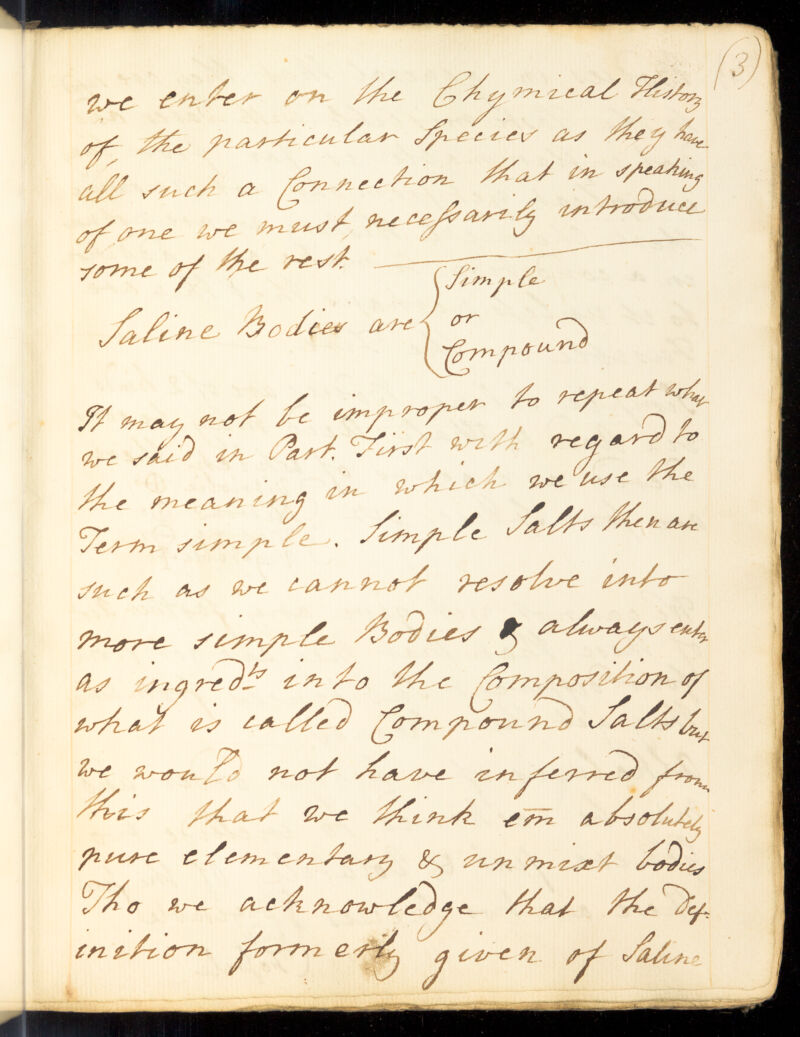 (3)
we enter on the Chymical History
of, the particular Species as they have
all such a Connection that in speaking
of, one we must, necessarily introduce
some of the rest.
Saline Bodies are { Simple
or
Compound
It may not be improper to repeat what
we said in Part. First with regard to
the meaning in which we use the
Term simple. Simple Salts then are
such as we cannot resolve into
more simple Bodies & always enter
as ingredts into the Composition of
what is called Compound Salts but
we would not have inferred from
this that we think em̅ absolutely
pure elementary & unmixt bodies
Tho we acknowledge that the Def-
inition formerly given of Saline